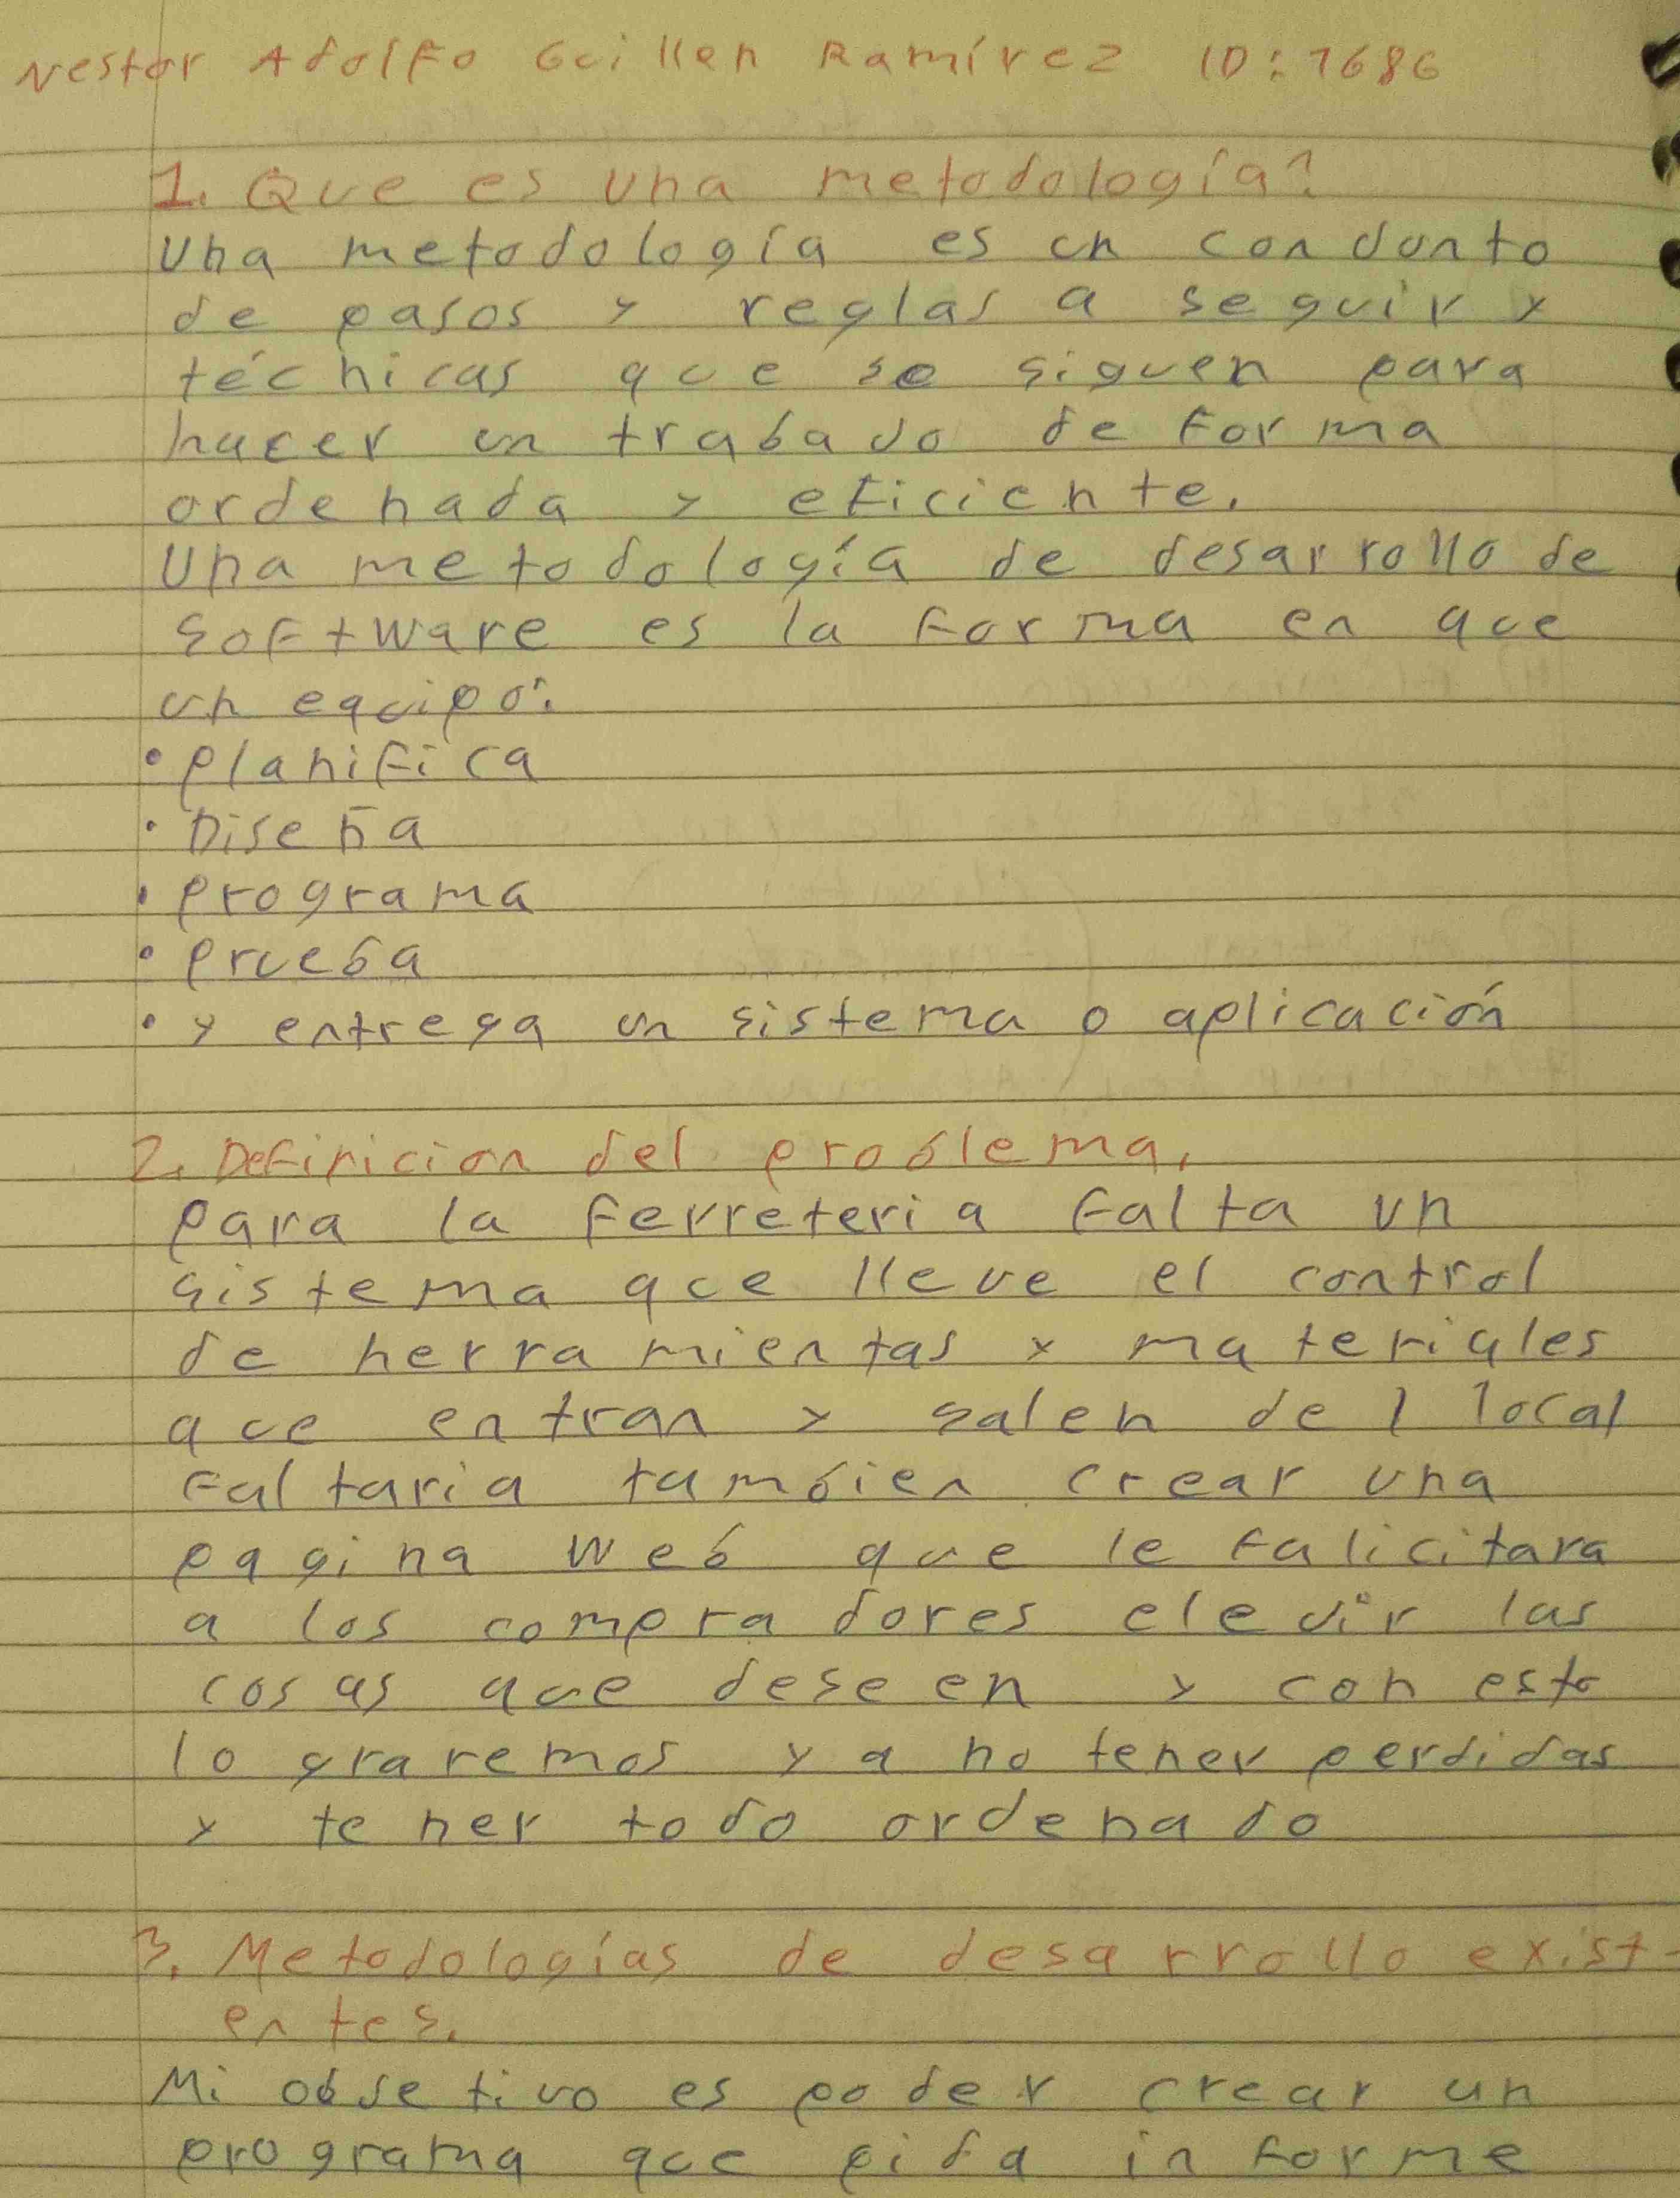 Nestor Adolfo Guillen Ramírez ID: 1686
1. Que es una metodología?
Una metodología es un conjunto
de pasos y reglas a seguir y
técnicas que se siguen para
hacer un trabajo de forma
ordenada y eficiente.
Una metodología de desarrollo de
software es la forma en que
un equipo:
• Planifica
• Diseña
• Programa
• Prueba
• y entrega un sistema o aplicación
2. Definicion del problema.
para la ferreteria falta un
sistema que lleve el control
de herramientas y materiales
que entran y salen del local
faltaria tambien crear una
pagina web que le falicitara
a los compradores elejir las
cosas que deseen y con esto
lograremos ya no tener perdidas
y tener todo ordenado
3. Metodologías de desarrollo exist-
entes.
Mi objetivo es poder crear un
programa que pida informe